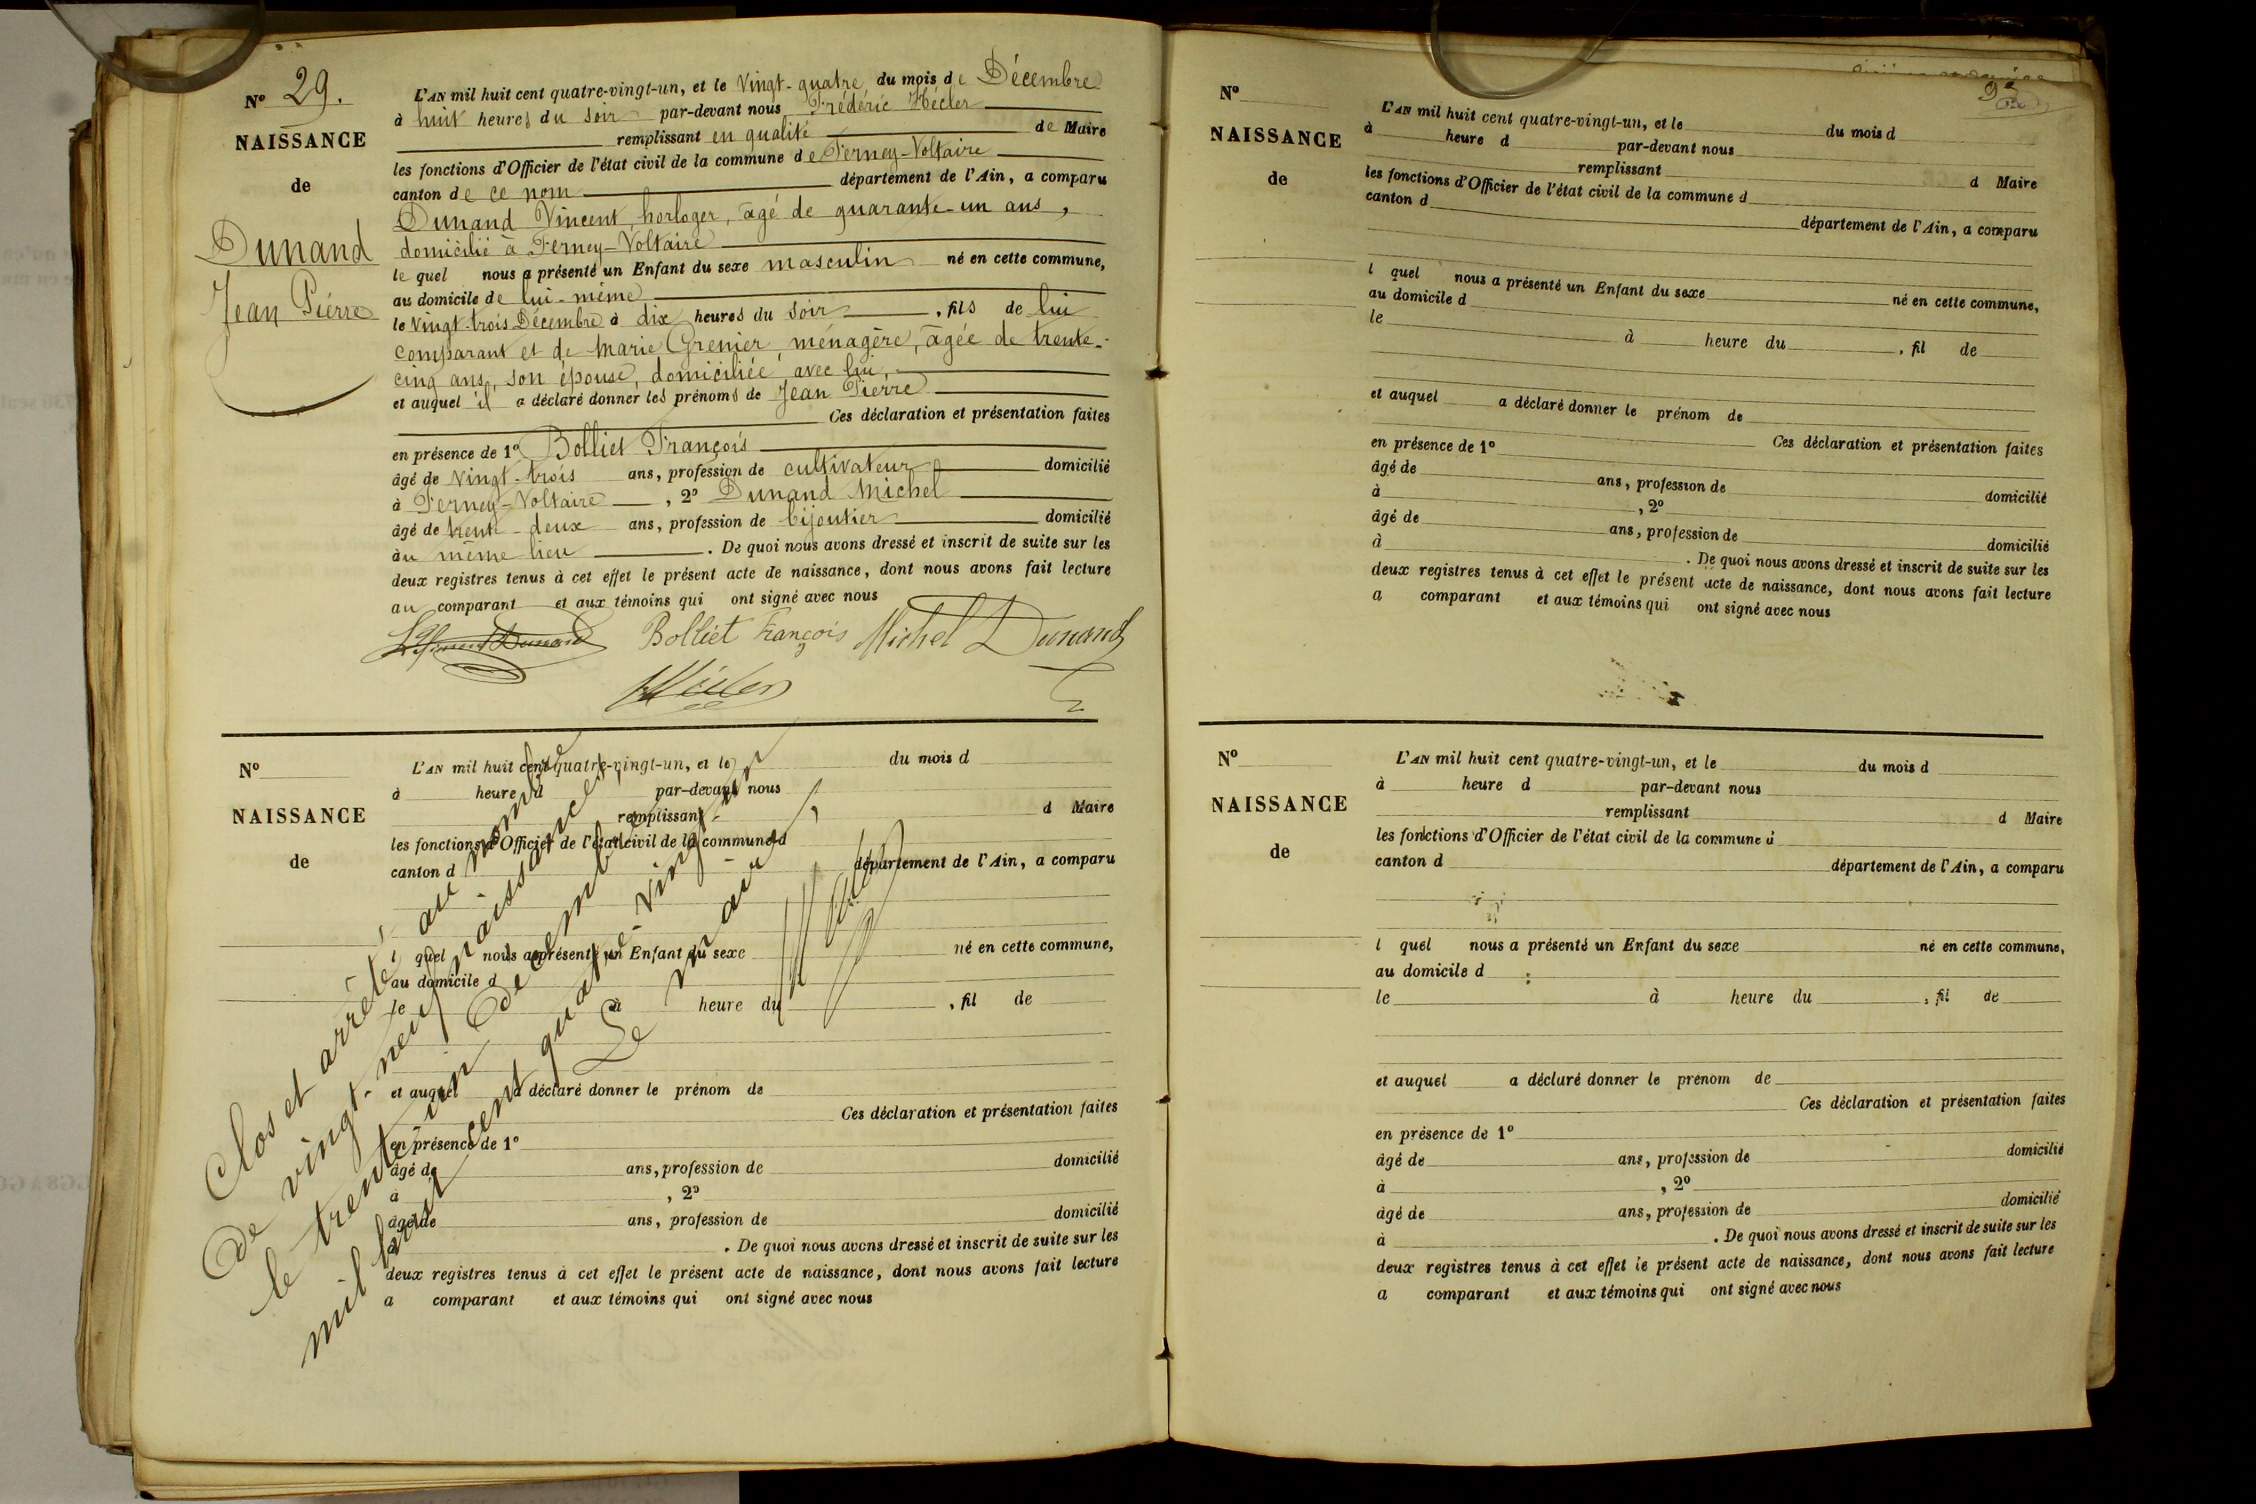 N° 29.
NAISSANCE
de
Dunand
Jean Pierre
L'AN mil huit cent quatre-vingt-un, et le Vingt-quatre du mois de Décembre
à huit heures du soir par-devant nous Frédéric Hécler
remplissant en qualité de Maire
les fonctions d'Officier de l'état civil de la commune de Ferney-Voltaire
canton de ce nom département de l'Ain, a comparu
Dunand Vincent, horloger, âgé de quarante-un ans,
domicilié à Ferney-Voltaire
le quel nous a présenté un Enfant du sexe masculin né en cette commune,
au domicile de lui-même
le Vingt-trois Décembre à dix heures du soir, fils de lui
comparant et de Marie Grenier, ménagère, âgée de trente-
cinq ans, son épouse, domiciliée avec lui,
et auquel il a déclaré donner les prénoms de Jean Pierre
Ces déclaration et présentation faites
en présence de 1° Bolliet François
âgé de vingt-trois ans, profession de cultivateur domicilié
à Ferney-Voltaire, 2° Dunand Michel
âgé de trente-deux ans, profession de bijoutier domicilié
au même lieu. De quoi nous avons dressé et inscrit de suite sur les
deux registres tenus à cet effet le présent acte de naissance, dont nous avons fait lecture
au comparant et aux témoins qui ont signé avec nous
Dunand Bolliet François Michel Dunand
Hécler
N°
NAISSANCE
de
L'AN mil huit cent quatre-vingt-un, et le du mois d
à heure d par-devant nous
remplissant d Maire
les fonctions d'Officier de l'état civil de la commune d
canton d département de l'Ain, a comparu
l quel nous a présenté un Enfant du sexe né en cette commune,
au domicile d
le à heure du , fil de
et auquel a déclaré donner le prénom de
Ces déclaration et présentation faites
en présence de 1°
âgé de ans, profession de domicilié
à , 2°
âgé de ans, profession de domicilié
à . De quoi nous avons dressé et inscrit de suite sur les
deux registres tenus à cet effet le présent acte de naissance, dont nous avons fait lecture
a comparant et aux témoins qui ont signé avec nous
Clos et arrêté, au nombre
de vingt-neuf naissances,
le trente-un Décembre
mil huit cent quatre-vingt-un
Le Maire,
Hécler
93
N°
NAISSANCE
de
L'AN mil huit cent quatre-vingt-un, et le du mois d
à heure d par-devant nous
remplissant d Maire
les fonctions d'Officier de l'état civil de la commune d
canton d département de l'Ain, a comparu
l quel nous a présenté un Enfant du sexe né en cette commune,
au domicile d
le à heure du , fil de
et auquel a déclaré donner le prénom de
Ces déclaration et présentation faites
en présence de 1°
âgé de ans, profession de domicilié
à , 2°
âgé de ans, profession de domicilié
à . De quoi nous avons dressé et inscrit de suite sur les
deux registres tenus à cet effet le présent acte de naissance, dont nous avons fait lecture
a comparant et aux témoins qui ont signé avec nous
N°
NAISSANCE
de
L'AN mil huit cent quatre-vingt-un, et le du mois d
à heure d par-devant nous
remplissant d Maire
les fonctions d'Officier de l'état civil de la commune d
canton d département de l'Ain, a comparu
l quel nous a présenté un Enfant du sexe né en cette commune,
au domicile d
le à heure du , fil de
et auquel a déclaré donner le prénom de
Ces déclaration et présentation faites
en présence de 1°
âgé de ans, profession de domicilié
à , 2°
âgé de ans, profession de domicilié
à . De quoi nous avons dressé et inscrit de suite sur les
deux registres tenus à cet effet le présent acte de naissance, dont nous avons fait lecture
a comparant et aux témoins qui ont signé avec nous